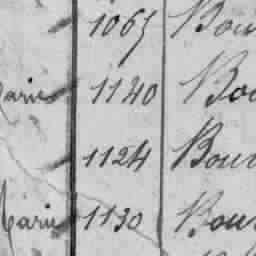 1065 Bou
arie 1140 Bou
1124 Bour
Marie 1130 Bour